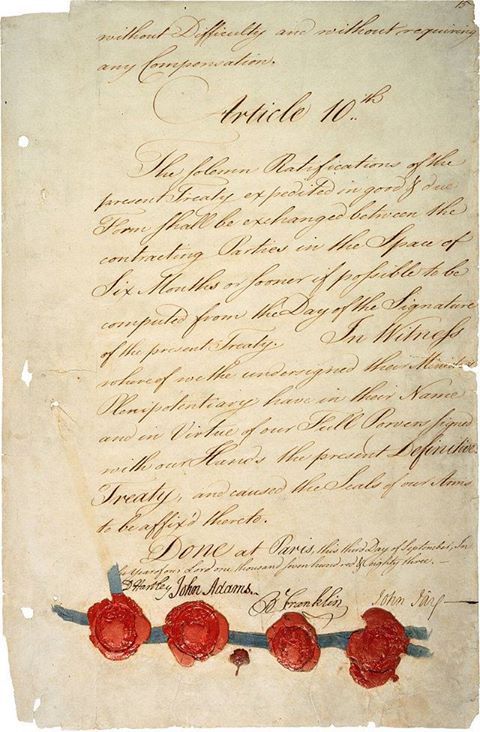 15
without Difficulty and without requiring
any Compensation.
Article 10th.
The solemn Ratifications of the
present Treaty expedited in good & due
Form shall be exchanged between the
contracting Parties in the Space of
Six Months or sooner if possible to be
computed from the Day of the Signature
of the present Treaty. In Witness
whereof we the undersigned their Ministers
Plenipotentiary have in their Name
and in Virtue of our Full Powers signed
with our Hands the present Definitive
Treaty, and caused the Seals of our Arms
to be affix'd thereto.
Done at Paris, this third Day of September, In
the Year of our Lord one thousand seven hundred & eighty three.
D Hartley John Adams. B Franklin John Jay